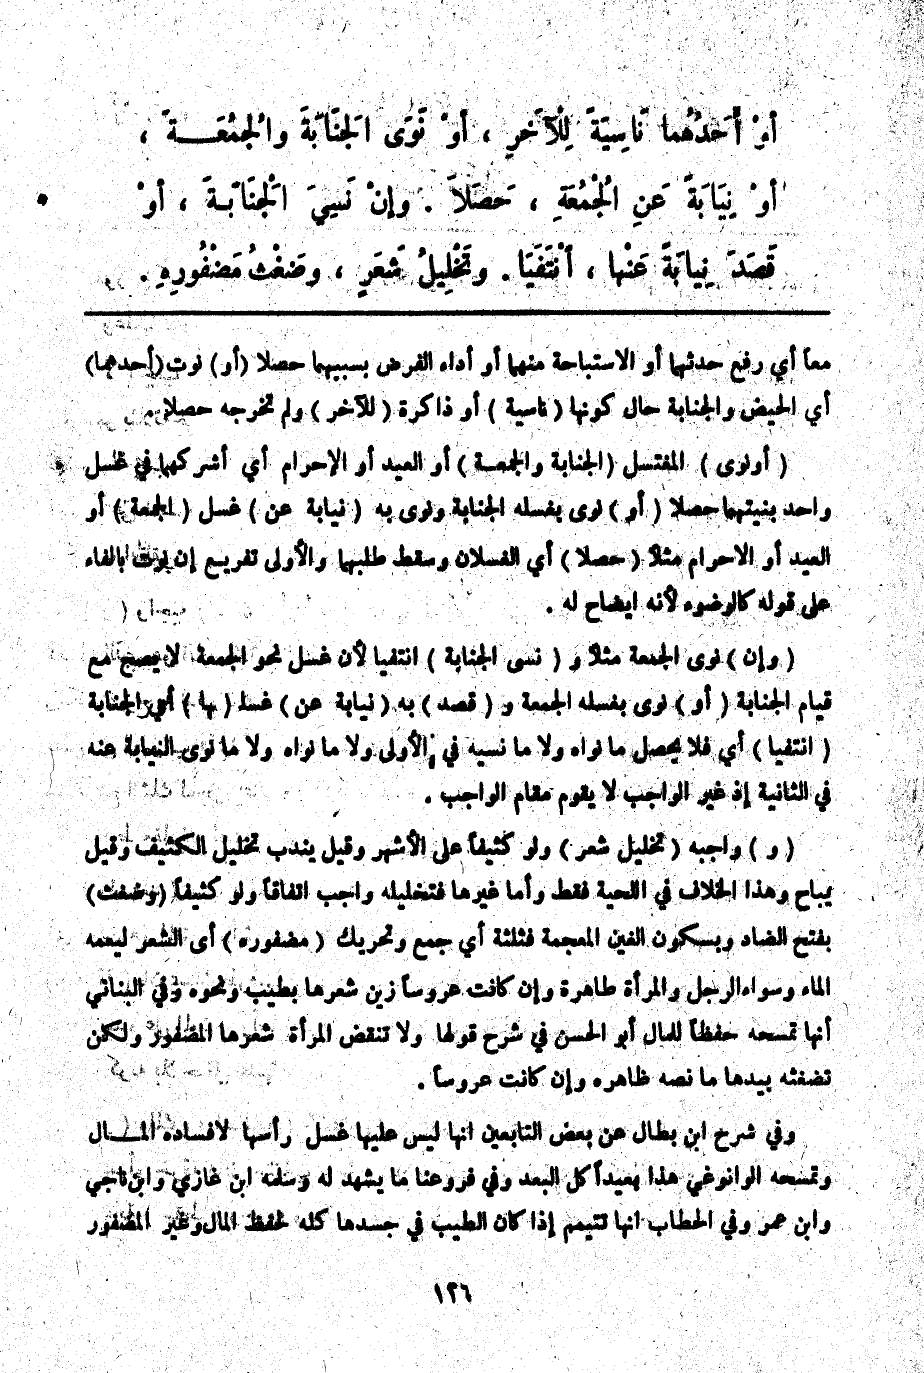 أوْ أَحَدُهُما نَاسِيَةً لِلْآخَرِ ، أوْ نَوَى الجَنَابَةَ والجُمُعَــةَ ،
أوْ نِيَابَةً عَنِ الْجُمُعَةِ ، حَصَلَا . وإنْ نَسِيَ الْجَنَابَـةَ ، أوْ
قَصَدَ نِيابَةً عَنْها ، انْتَفَيَا . وتَخْلِيلُ شَعَرٍ ، وضَغْثُ مَضْفُورِهِ .
معاً أي رفع حدثيها أو الاستباحة منهما أو أداء الفرض بسببهما حصلا (أو) نوت(أحدهما)
أي الحيض والجنابة حال كونها ( ناسية ) أو ذاكرة ( للآخر ) ولم تخرجه حصلا .
( أونوى ) المغتسل (الجنابة والجمعـة ) أو العيد أو الإحرام أي أشركهما في غسل
واحد بنيتهما حصلا ( أو ) نوى بغسله الجنابة ونوى به ( نيابة عن ) غسل ( الجمعة ) أو
العيد أو الاحرام مثلاً ( حصلا ) أي الغسلان وسقط طلبهما والأولى تفريـع إن نوت بالفاء
على قوله كالوضوء لأنه ايضاح له .
( وإن ) نوى الجمعة مثلاً و ( نسى الجنابة ) انتفيا لأن غسل نحو الجمعة لا يصح مع
قيام الجنابة ( أو ) نوى بغسله الجمعة و ( قصد ) به ( نيابة عن ) غسل ( ها ) أي الجنابة
( انتفيا ) أي فلا يحصل ما نواه ولا ما نسيه في الأولى ولا ما نواه ولا ما نوى النيابة عنه
في الثانية إذ غير الواجب لا يقوم مقام الواجب .
( و ) واجبه ( تخليل شعر ) ولو كثيفاً على الأشهر وقيل يندب تخليل الكثيف وقيل
يباح وهذا الخلاف في اللحية فقط وأما غيرها فتخليله واجب اتفاقاً ولو كثيفاً (وضغث)
بفتح الضاد وبسكون الغين المعجمة فثلثة أي جمع وتحريك ( مضفوره ) أى الشعر ليعمه
الماء وسواءالرجل والمرأة طاهرة وإن كانت عروساً زين شعرها بطيب ونحوه وفي البناني
أنها تمسحه حفظاً للمال أبو الحسن في شرح قولها ولا تنقض المرأة شعرها المضفور ولكن
تضغثه بيدها ما نصه ظاهره وإن كانت عروساً .
وفي شرح ابن بطال عن بعض التابعين انها ليس عليها غسل رأسها لافساده المــال
وتمسحه الوانوغي هذا بعيداً كل البعد وفي فروعنا ما يشهد له وسلمه ابن غازي وابن ناجي
وابن عمر وفي الحطاب انها تتيمم إذا كان الطيب في جسدها كله لحفظ المال وغير المضفور
١٢٦